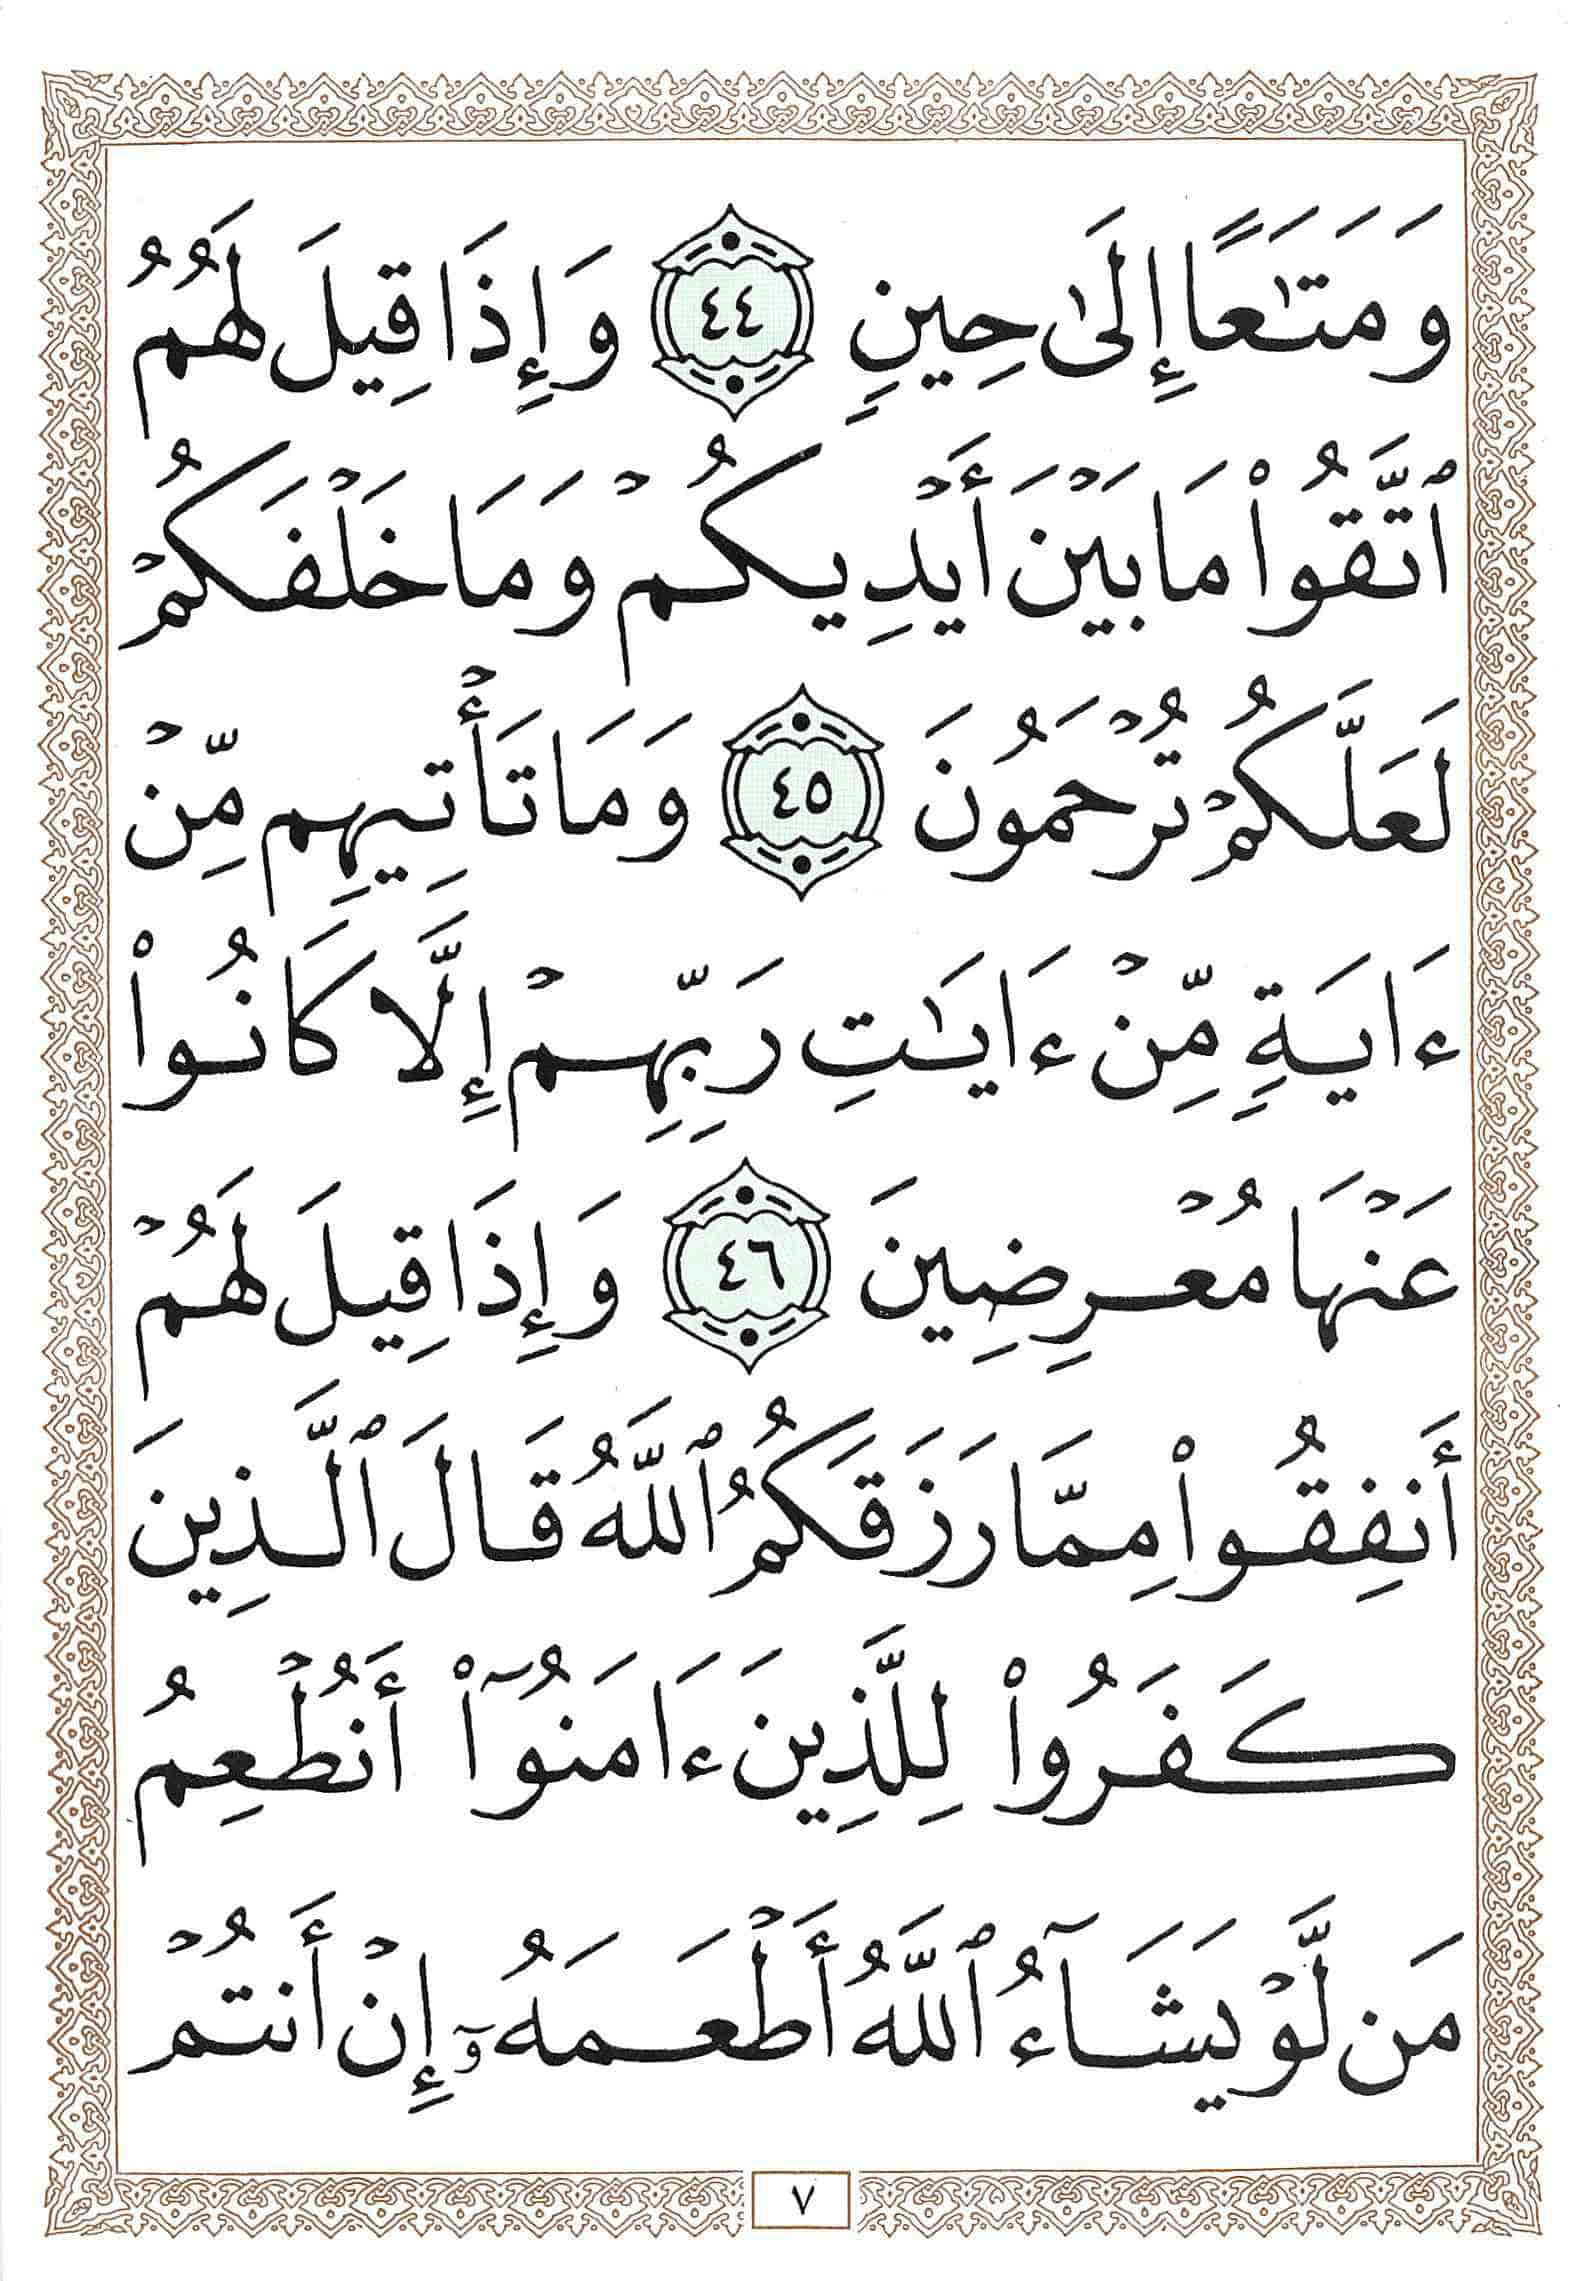 وَمَتَٰعًا إِلَىٰ حِينٍ ٤٤ وَإِذَا قِيلَ لَهُمُ
ٱتَّقُوا۟ مَا بَيْنَ أَيْدِيكُمْ وَمَا خَلْفَكُمْ
لَعَلَّكُمْ تُرْحَمُونَ ٤٥ وَمَا تَأْتِيهِم مِّنْ
ءَايَةٍ مِّنْ ءَايَٰتِ رَبِّهِمْ إِلَّا كَانُوا۟
عَنْهَا مُعْرِضِينَ ٤٦ وَإِذَا قِيلَ لَهُمْ
أَنفِقُوا۟ مِمَّا رَزَقَكُمُ ٱللَّهُ قَالَ ٱلَّذِينَ
كَفَرُوا۟ لِلَّذِينَ ءَامَنُوٓا۟ أَنُطْعِمُ
مَن لَّوْ يَشَآءُ ٱللَّهُ أَطْعَمَهُۥٓ إِنْ أَنتُمْ
٧